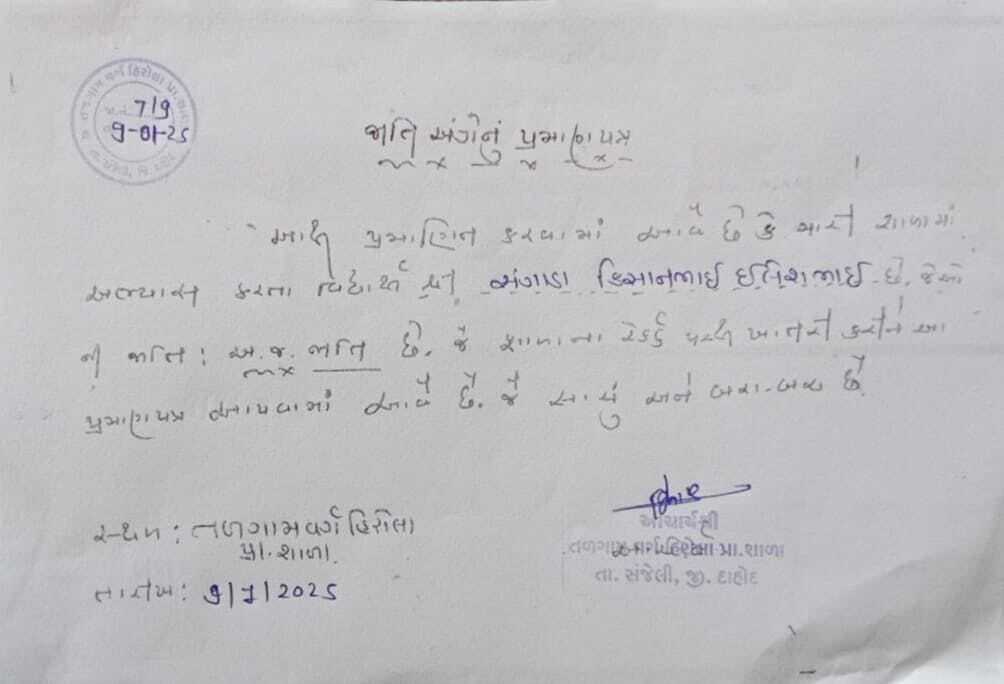 તળગામ વર્ગ હિરોલા પ્રા.શાળા
7/9
9-01-25
જાતિ અંગેનું પ્રમાણપત્ર
આથી પ્રમાણિત કરવામાં આવે છે કે મારી શાળામાં
અભ્યાસ કરતા વિદ્યાર્થી શ્રી સંગાડા કિસાનભાઈ ઈલેશભાઈ છે. જેઓ
ની જાતિ : અ.જ. જાતિ છે. જે શાળાના રેકર્ડ પરથી ખાતરી કરીને આ
પ્રમાણપત્ર આપવામાં આવે છે. જે સાચું અને બરા-બર છે
સ્થળ : તળગામવર્ગ હિરોલા
પ્રા.શાળા
તારીખ : 9/1/2025
આચાર્યશ્રી
તળગામ વર્ગ હિરોલા પ્રા.શાળા
તા. સંજેલી, જી. દાહોદ